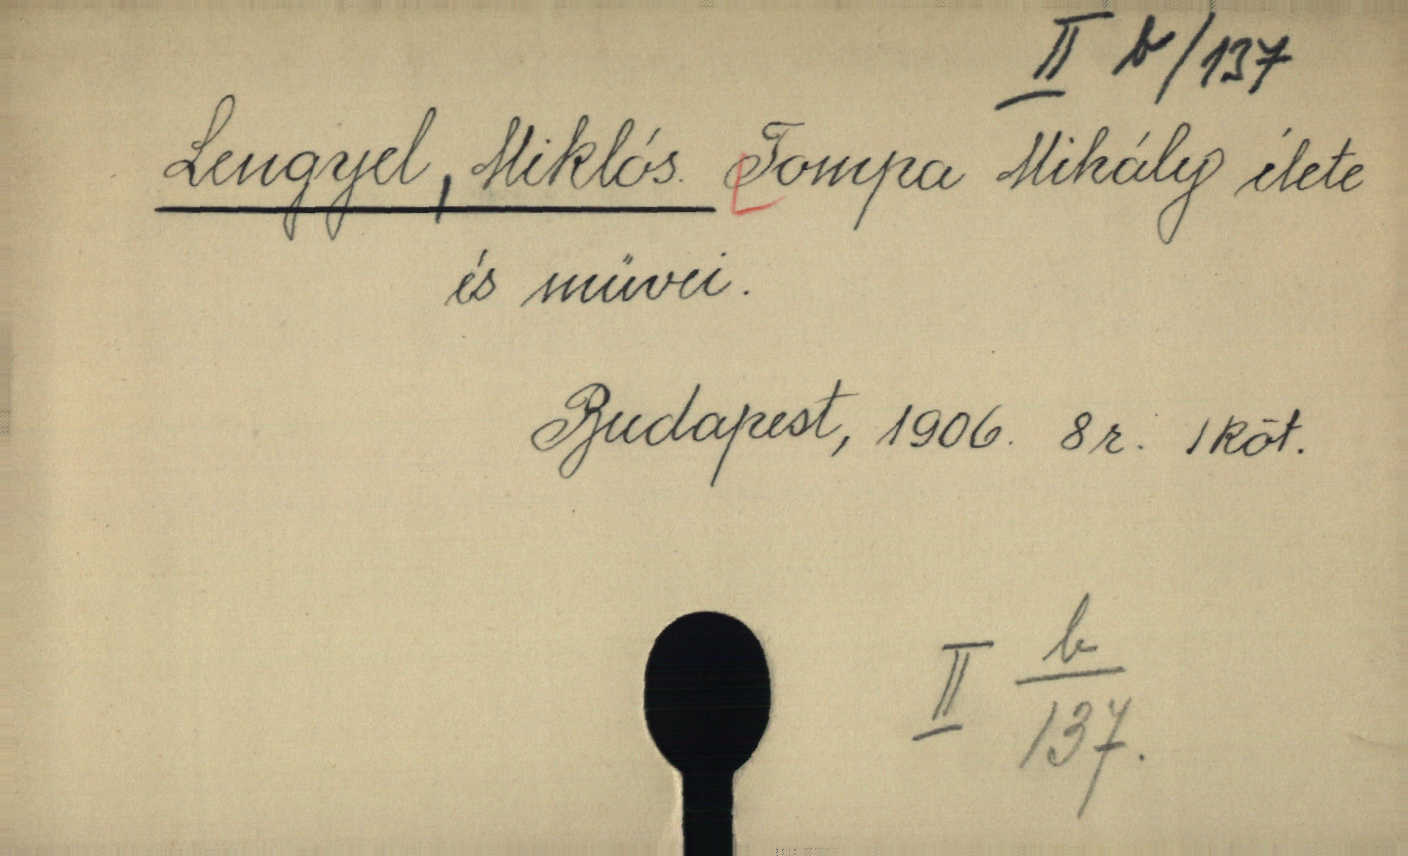 II b/137
Lengyel, Miklós. Tompa Mihály élete
és müvei.
Budapest, 1906. 8 r. 1 köt.
II b/137.